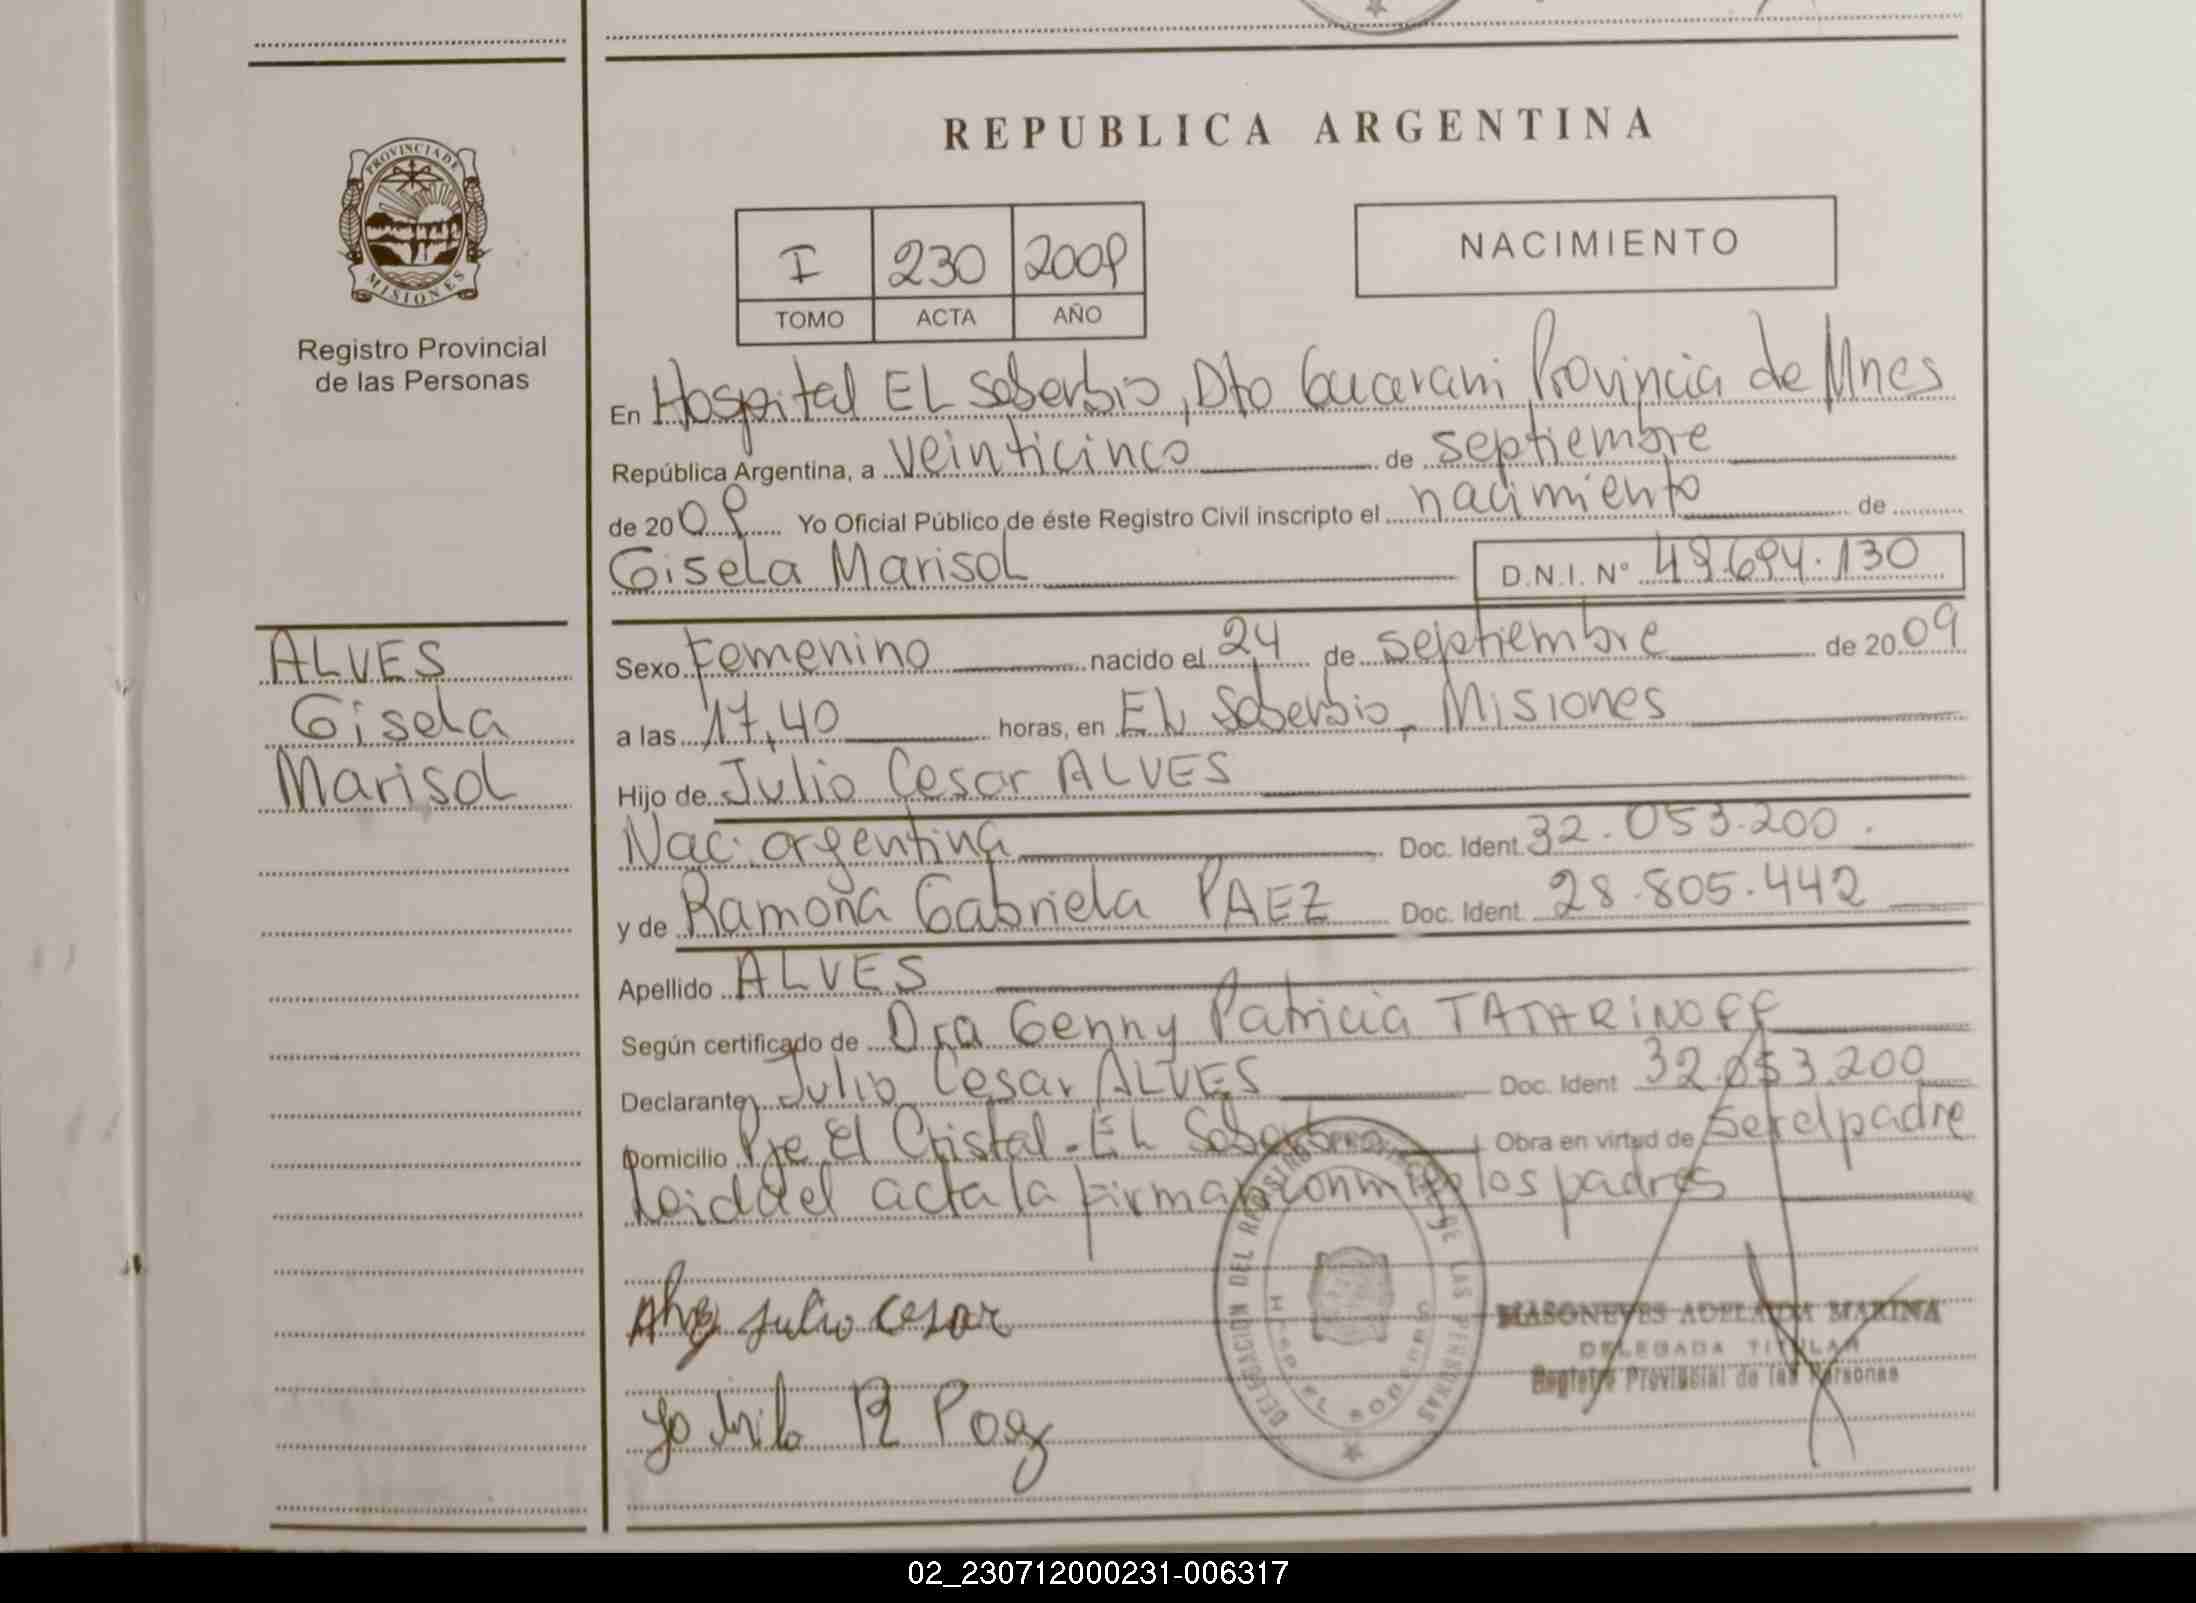 REPUBLICA ARGENTINA
PROVINCIA DE
MISIONES
Registro Provincial
de las Personas
I 230 2009
TOMO ACTA AÑO
NACIMIENTO
En Hospital EL Soberbio, Dto Guarani Provincia de Mnes
República Argentina, a veinticinco de septiembre
de 2009 Yo Oficial Público de éste Registro Civil inscripto el nacimiento de
Gisela Marisol D.N.I. Nº 49.694.130
ALVES
Gisela
Marisol
Sexo Femenino nacido el 24 de septiembre de 2009
a las 17,40 horas, en EL Soberbio, Misiones
Hijo de Julio Cesar ALVES
Nac. argentina Doc. Ident. 32.053.200.
y de Ramona Gabriela PAEZ Doc. Ident. 28.805.442
Apellido ALVES
Según certificado de Dra Genny Patricia TATARINOFF
Declarante Julio Cesar ALVES Doc. Ident 32.053.200
Domicilio Pje El Cristal - EL Soberbio Obra en virtud de ser el padre
Leida el acta la firman conmigo los padres
Julio Cesar
DELEGACION DEL REGISTRO PROVINCIAL DE LAS PERSONAS
MASONEVES ADELAIDA MARINA
DELEGADA TITULAR
Registro Provincial de las Personas
02_230712000231-006317